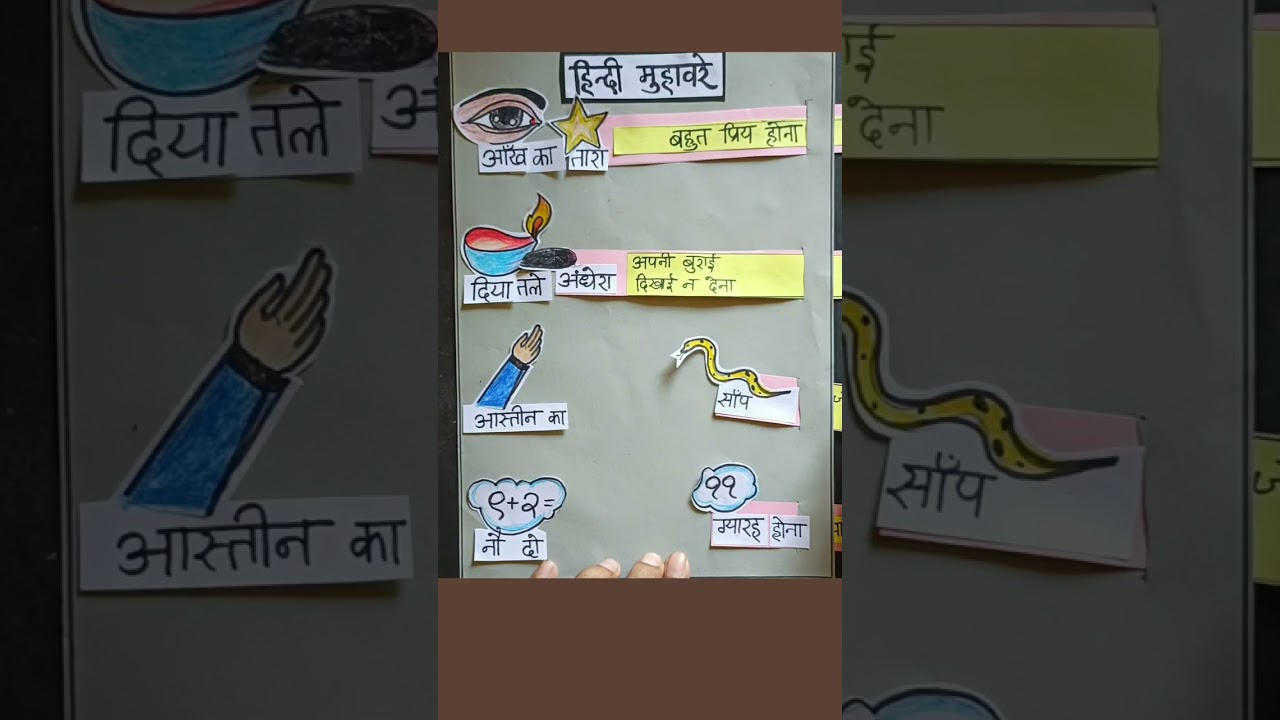 हिन्दी मुहावरे
आँख का तारा
बहुत प्रिय होना
दिया तले अंधेरा
अपनी बुराई
दिखाई न देना
आस्तीन का
साँप
९+२=
नौ दो
११
ग्यारह होना
दिया तले
आस्तीन का
देना
साँप